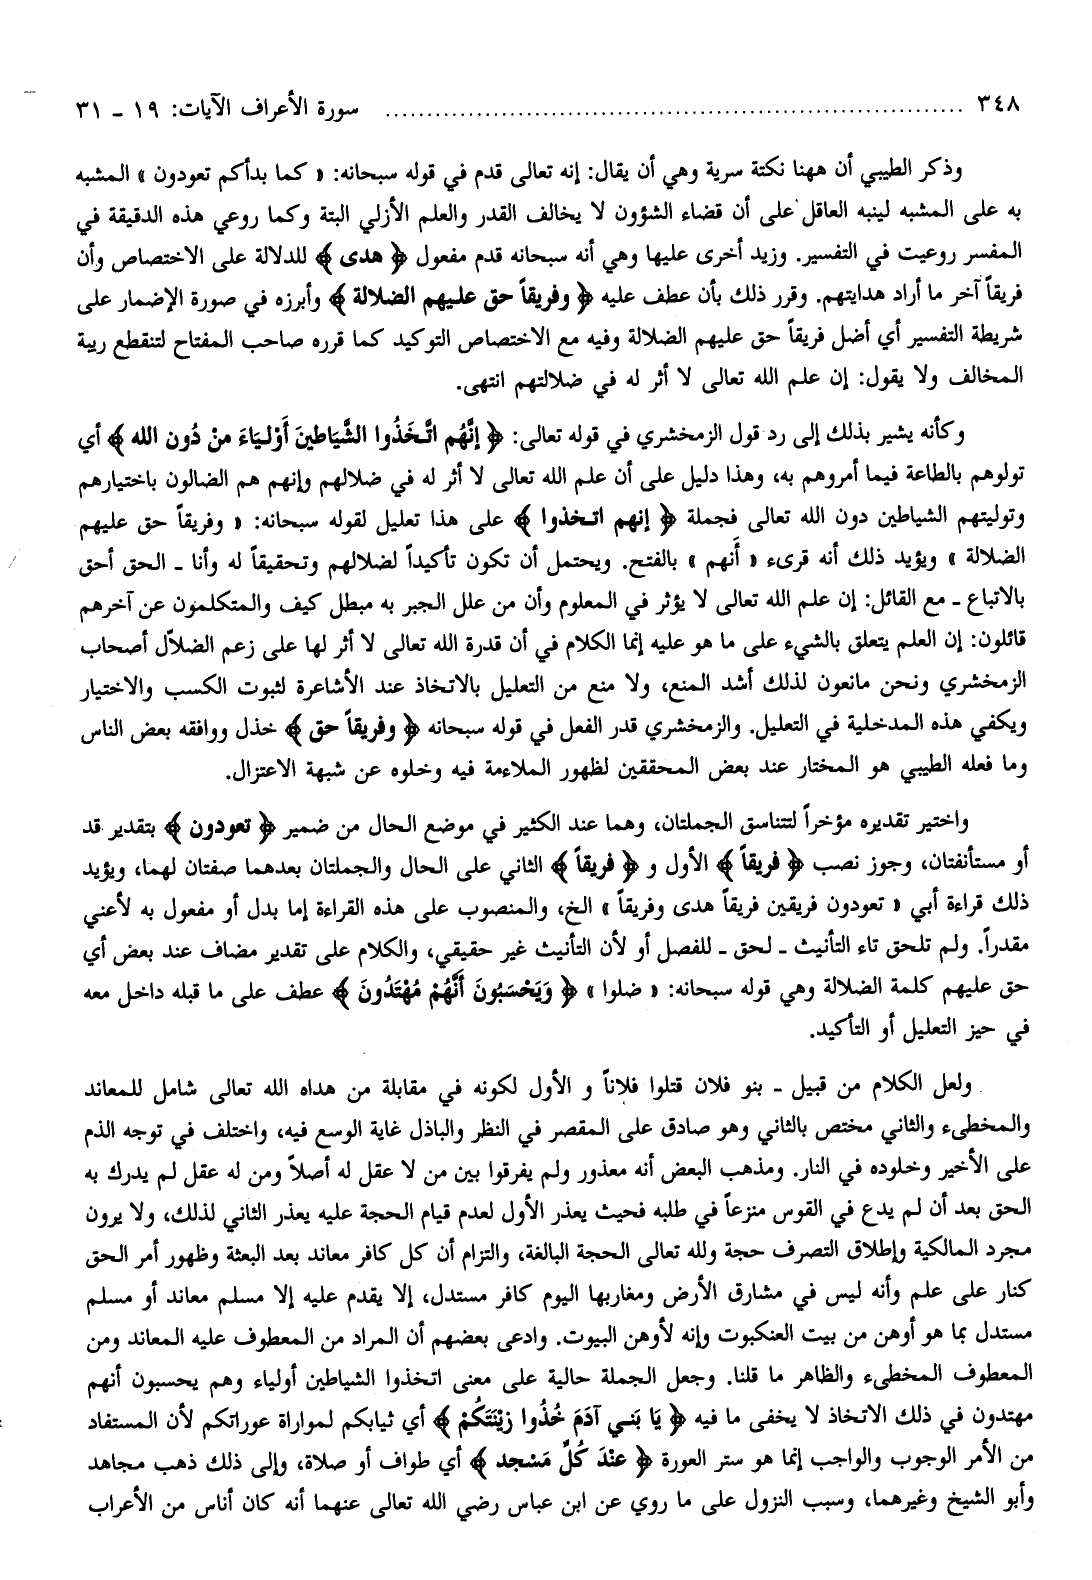 ٣٤٨ ........................................................................ سورة الأعراف الآيات: ١٩ ـ ٣١
وذكر الطيبي أن ههنا نكتة سرية وهي أن يقال: إنه تعالى قدم في قوله سبحانه: « كما بدأكم تعودون » المشبه
به على المشبه لينبه العاقل على أن قضاء الشؤون لا يخالف القدر والعلم الأزلي البتة وكما روعي هذه الدقيقة في
المفسر روعيت في التفسير. وزيد أخرى عليها وهي أنه سبحانه قدم مفعول ﴿ هدى ﴾ للدلالة على الاختصاص وأن
فريقاً آخر ما أراد هدايتهم. وقرر ذلك بأن عطف عليه ﴿ وفريقاً حق عليهم الضلالة ﴾ وأبرزه في صورة الإضمار على
شريطة التفسير أي أضل فريقاً حق عليهم الضلالة وفيه مع الاختصاص التوكيد كما قرره صاحب المفتاح لتنقطع ريبة
المخالف ولا يقول: إن علم الله تعالى لا أثر له في ضلالتهم انتهى.
وكأنه يشير بذلك إلى رد قول الزمخشري في قوله تعالى: ﴿ إِنَّهُم اتَّخَذُوا الشَّيَاطينَ أَوْليَاءَ منْ دُون الله ﴾ أي
تولوهم بالطاعة فيما أمروهم به، وهذا دليل على أن علم الله تعالى لا أثر له في ضلالهم وإنهم هم الضالون باختيارهم
وتوليتهم الشياطين دون الله تعالى فجملة ﴿ إنهم اتخذوا ﴾ على هذا تعليل لقوله سبحانه: « وفريقاً حق عليهم
الضلالة » ويؤيد ذلك أنه قرىء « أَنهم » بالفتح. ويحتمل أن تكون تأكيداً لضلالهم وتحقيقاً له وأنا ـ الحق أحق
بالاتباع ـ مع القائل: إن علم الله تعالى لا يؤثر في المعلوم وأن من علل الجبر به مبطل كيف والمتكلمون عن آخرهم
قائلون: إن العلم يتعلق بالشيء على ما هو عليه إنما الكلام في أن قدرة الله تعالى لا أثر لها على زعم الضلاّل أصحاب
الزمخشري ونحن مانعون لذلك أشد المنع، ولا منع من التعليل بالاتخاذ عند الأشاعرة لثبوت الكسب والاختيار
ويكفي هذه المدخلية في التعليل. والزمخشري قدر الفعل في قوله سبحانه ﴿ وفريقاً حق ﴾ خذل ووافقه بعض الناس
وما فعله الطيبي هو المختار عند بعض المحققين لظهور الملاءمة فيه وخلوه عن شبهة الاعتزال.
واختير تقديره مؤخراً لتتناسق الجملتان، وهما عند الكثير في موضع الحال من ضمير ﴿ تعودون ﴾ بتقدير قد
أو مستأنفتان، وجوز نصب ﴿ فريقاً ﴾ الأول و ﴿ فريقاً ﴾ الثاني على الحال والجملتان بعدهما صفتان لهما، ويؤيد
ذلك قراءة أبي « تعودون فريقين فريقاً هدى وفريقاً » الخ، والمنصوب على هذه القراءة إما بدل أو مفعول به لأعني
مقدراً. ولم تلحق تاء التأنيث ـ لحق ـ للفصل أو لأن التأنيث غير حقيقي، والكلام على تقدير مضاف عند بعض أي
حق عليهم كلمة الضلالة وهي قوله سبحانه: « ضلوا » ﴿ وَيَحْسَبُونَ أَنَّهُمْ مُهْتَدُونَ ﴾ عطف على ما قبله داخل معه
في حيز التعليل أو التأكيد.
ولعل الكلام من قبيل ـ بنو فلان قتلوا فلاناً و الأول لكونه في مقابلة من هداه الله تعالى شامل للمعاند
والمخطىء والثاني مختص بالثاني وهو صادق على المقصر في النظر والباذل غاية الوسع فيه، واختلف في توجه الذم
على الأخير وخلوده في النار. ومذهب البعض أنه معذور ولم يفرقوا بين من لا عقل له أصلاً ومن له عقل لم يدرك به
الحق بعد أن لم يدع في القوس منزعاً في طلبه فحيث يعذر الأول لعدم قيام الحجة عليه يعذر الثاني لذلك، ولا يرون
مجرد المالكية وإطلاق التصرف حجة ولله تعالى الحجة البالغة، والتزام أن كل كافر معاند بعد البعثة وظهور أمر الحق
كنار على علم وأنه ليس في مشارق الأرض ومغاربها اليوم كافر مستدل، إلا يقدم عليه إلا مسلم معاند أو مسلم
مستدل بما هو أوهن من بيت العنكبوت وإنه لأوهن البيوت. وادعى بعضهم أن المراد من المعطوف عليه المعاند ومن
المعطوف المخطىء والظاهر ما قلنا. وجعل الجملة حالية على معنى اتخذوا الشياطين أولياء وهم يحسبون أنهم
مهتدون في ذلك الاتخاذ لا يخفى ما فيه ﴿ يَا بَني آدَمَ خُذُوا زينَتَكُمْ ﴾ أي ثيابكم لمواراة عوراتكم لأن المستفاد
من الأمر الوجوب والواجب إنما هو ستر العورة ﴿ عنْدَ كُلِّ مَسْجد ﴾ أي طواف أو صلاة، وإلى ذلك ذهب مجاهد
وأبو الشيخ وغيرهما، وسبب النزول على ما روي عن ابن عباس رضي الله تعالى عنهما أنه كان أناس من الأعراب